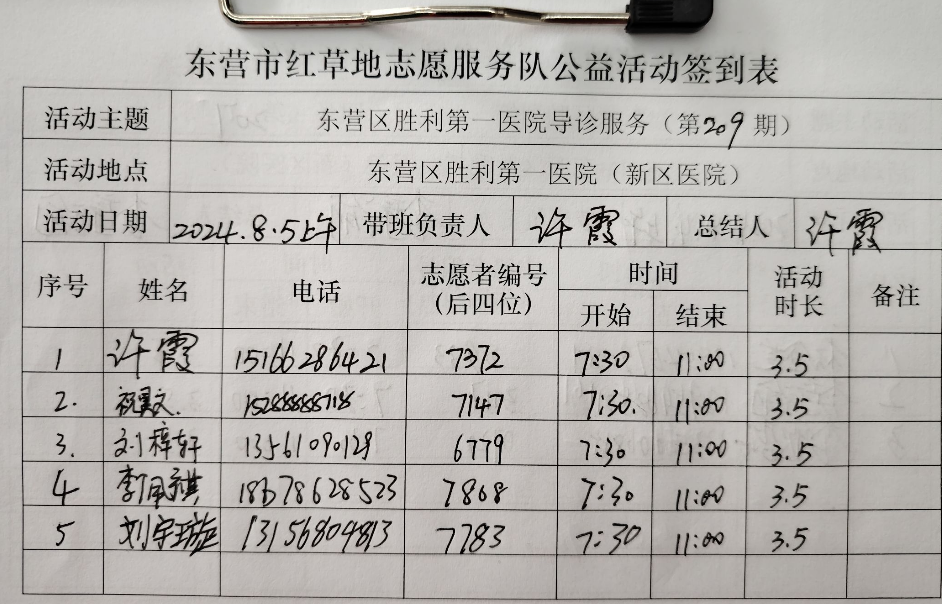 东营市红草地志愿服务队公益活动签到表
活动主题 东营区胜利第一医院导诊服务（第209期）
活动地点 东营区胜利第一医院（新区医院）
活动日期 2024.8.5上午 带班负责人 许霞 总结人 许霞
序号 姓名 电话 志愿者编号（后四位） 时间 开始 结束 活动时长 备注
1 许霞 15166286421 7372 7:30 11:00 3.5
2. 7147 7:30. 11:00 3.5
3. 刘梓轩 13561090129 6779 7:30 11:00 3.5
4 18678628523 7868 7:30 11:00 3.5
5 刘宇璇 13156804813 7783 7:30 11:00 3.5